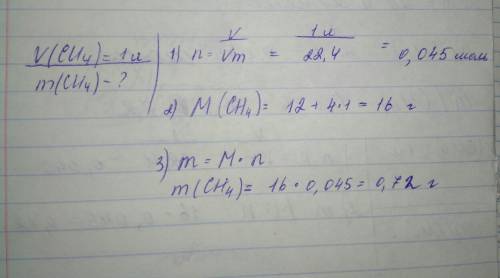 V(CH₄)=1л
m(CH₄)-?
1) n = V/Vm = 1л/22,4 = 0,045 моль
2) M(CH₄)= 12+4·1=16 г
3) m = M·n
m(CH₄)= 16·0,045=0,72 г